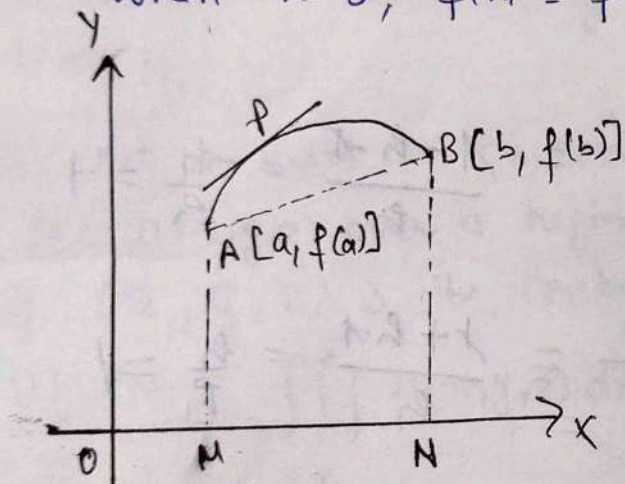 Y
P
B [b, f(b)]
A [a, f(a)]
X
O
M
N